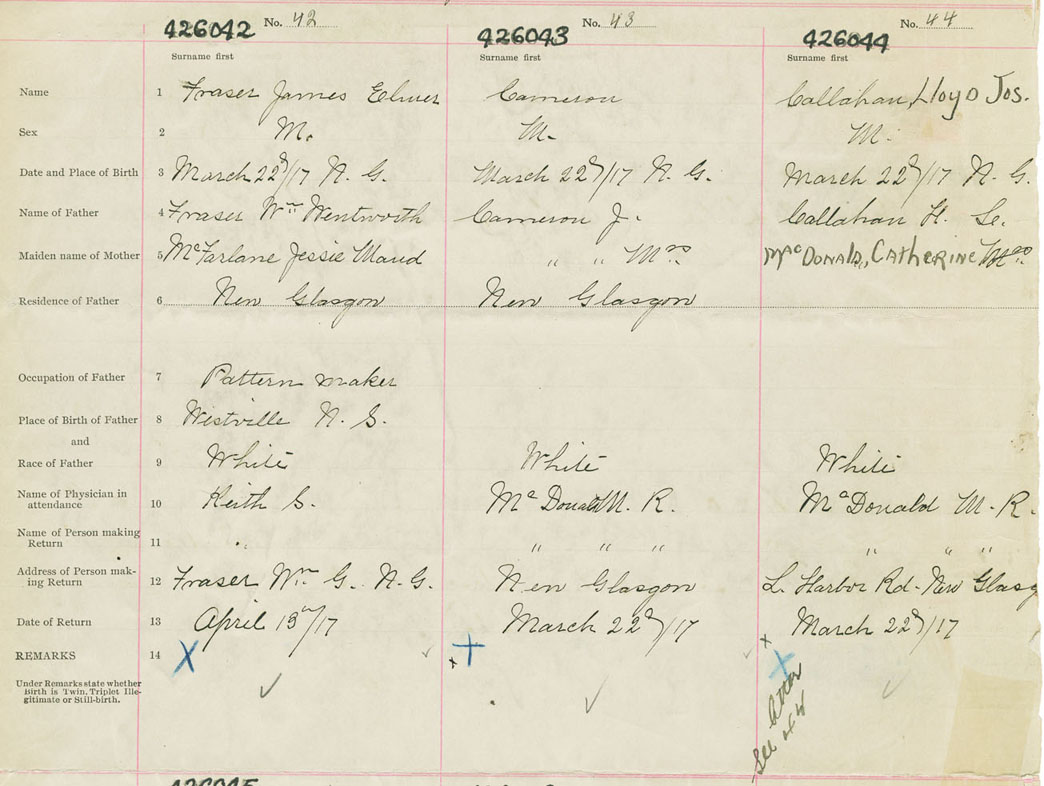 426042 No. 42 426043 No. 43 426044 No. 44
Surname first Surname first Surname first
Name 1 Fraser James Elmer Cameron Callahan, Lloyd Jos.
Sex 2 M. M. M.
Date and Place of Birth 3 March 22d/17 N. G. March 22d/17 N. G. March 22d/17 N. G.
Name of Father 4 Fraser Wm Wentworth Cameron J. Callahan H.
Maiden name of Mother 5 McFarlane Jessie Maud " " Mrs MacDonald, Catherine Mrs
Residence of Father 6 New Glasgow New Glasgow
Occupation of Father 7 Pattern maker
Place of Birth of Father 8 Westville N. S.
and
Race of Father 9 White White White
Name of Physician in
attendance 10 Keith S. McDonald M. R. McDonald M. R.
Name of Person making
Return 11 " " " " " " "
Address of Person mak-
ing Return 12 Fraser Wm G. N. G. New Glasgow L. Harbor Rd - New Glasg
Date of Return 13 April 13th/17 March 22d/17 March 22d/17
REMARKS 14 X + X
x x
Under Remarks state whether
Birth is Twin. Triplet Ille-
gitimate or Still-birth.
See letter
of 44
426045